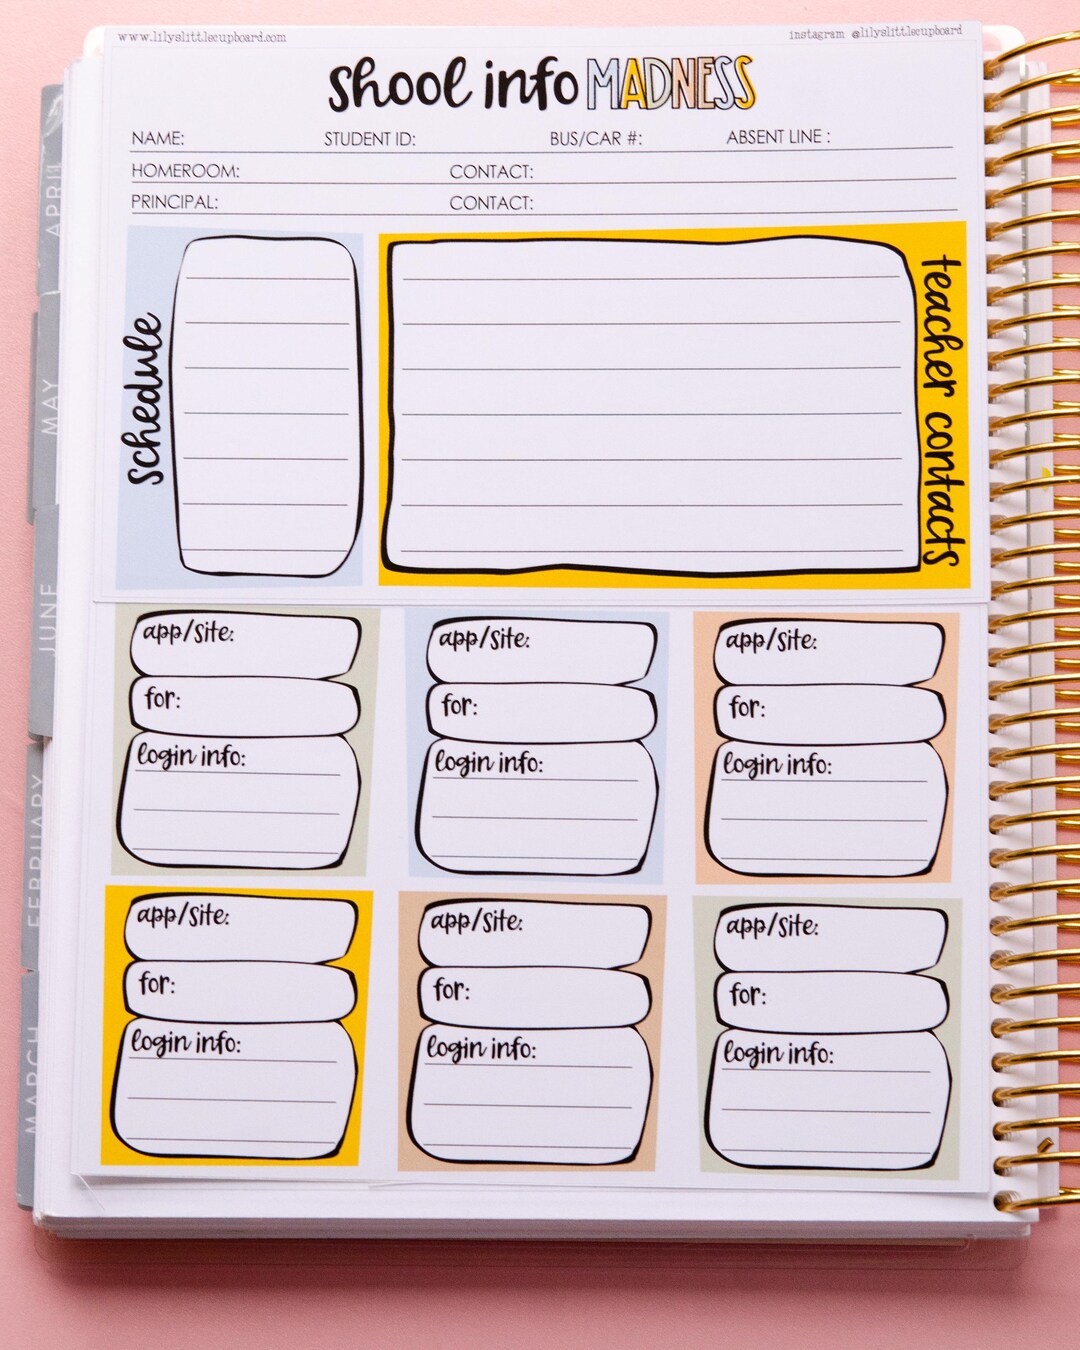 www.lilyslittlecupboard.com
instagram @lilyslittlecupboard
shool info MADNESS
NAME: STUDENT ID: BUS/CAR #: ABSENT LINE :
HOMEROOM: CONTACT:
PRINCIPAL: CONTACT:
schedule
teacher contacts
app/site: app/site: app/site:
for: for: for:
login info: login info: login info:
app/site: app/site: app/site:
for: for: for:
login info: login info: login info:
APRIL
MAY
JUNE
FEBRUARY
MARCH